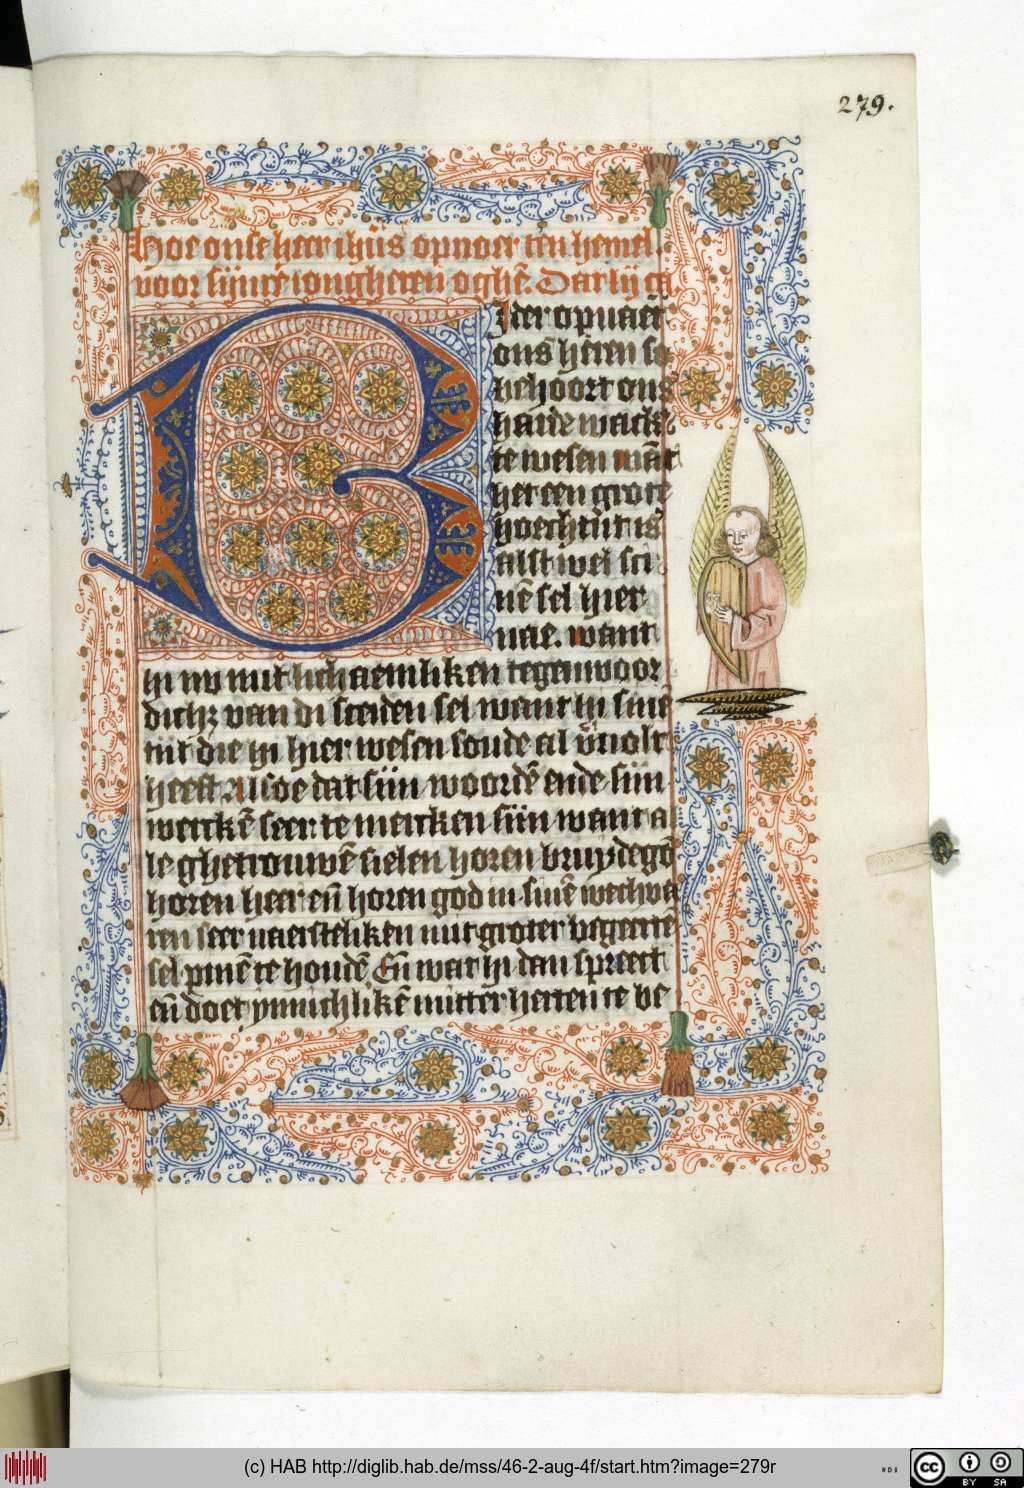 279.
Hoe onse heer ihūs opuoer ten hemel
voor sijnre iongherē oghē. Dat lij ca
Jder opuaert
ons herē so
behoort ons
haide wack
te wesen wāt
het een grote
hoechtijt is
alst wel sci
nē sel hier
nae. want
hi nv mit lichaemliken tegenwoor
dich van di sceiden sel want hi sine
tijt die hi hier wesen soude al
heeft Alsoe dat sijn woordē ende sijn
werckē seer te mercken sijn want al
le ghetrouwē sielen horen bruydegō
horen heer eñ horen god in sinē wechva
ren seer naersteliken mit groter begerte
sel pinē te houdē. Eñ wat hi dan spreect
eñ doet ynnichlikē mitter herten te be
(c) HAB http://diglib.hab.de/mss/46-2-aug-4f/start.htm?image=279r
cc
BY SA